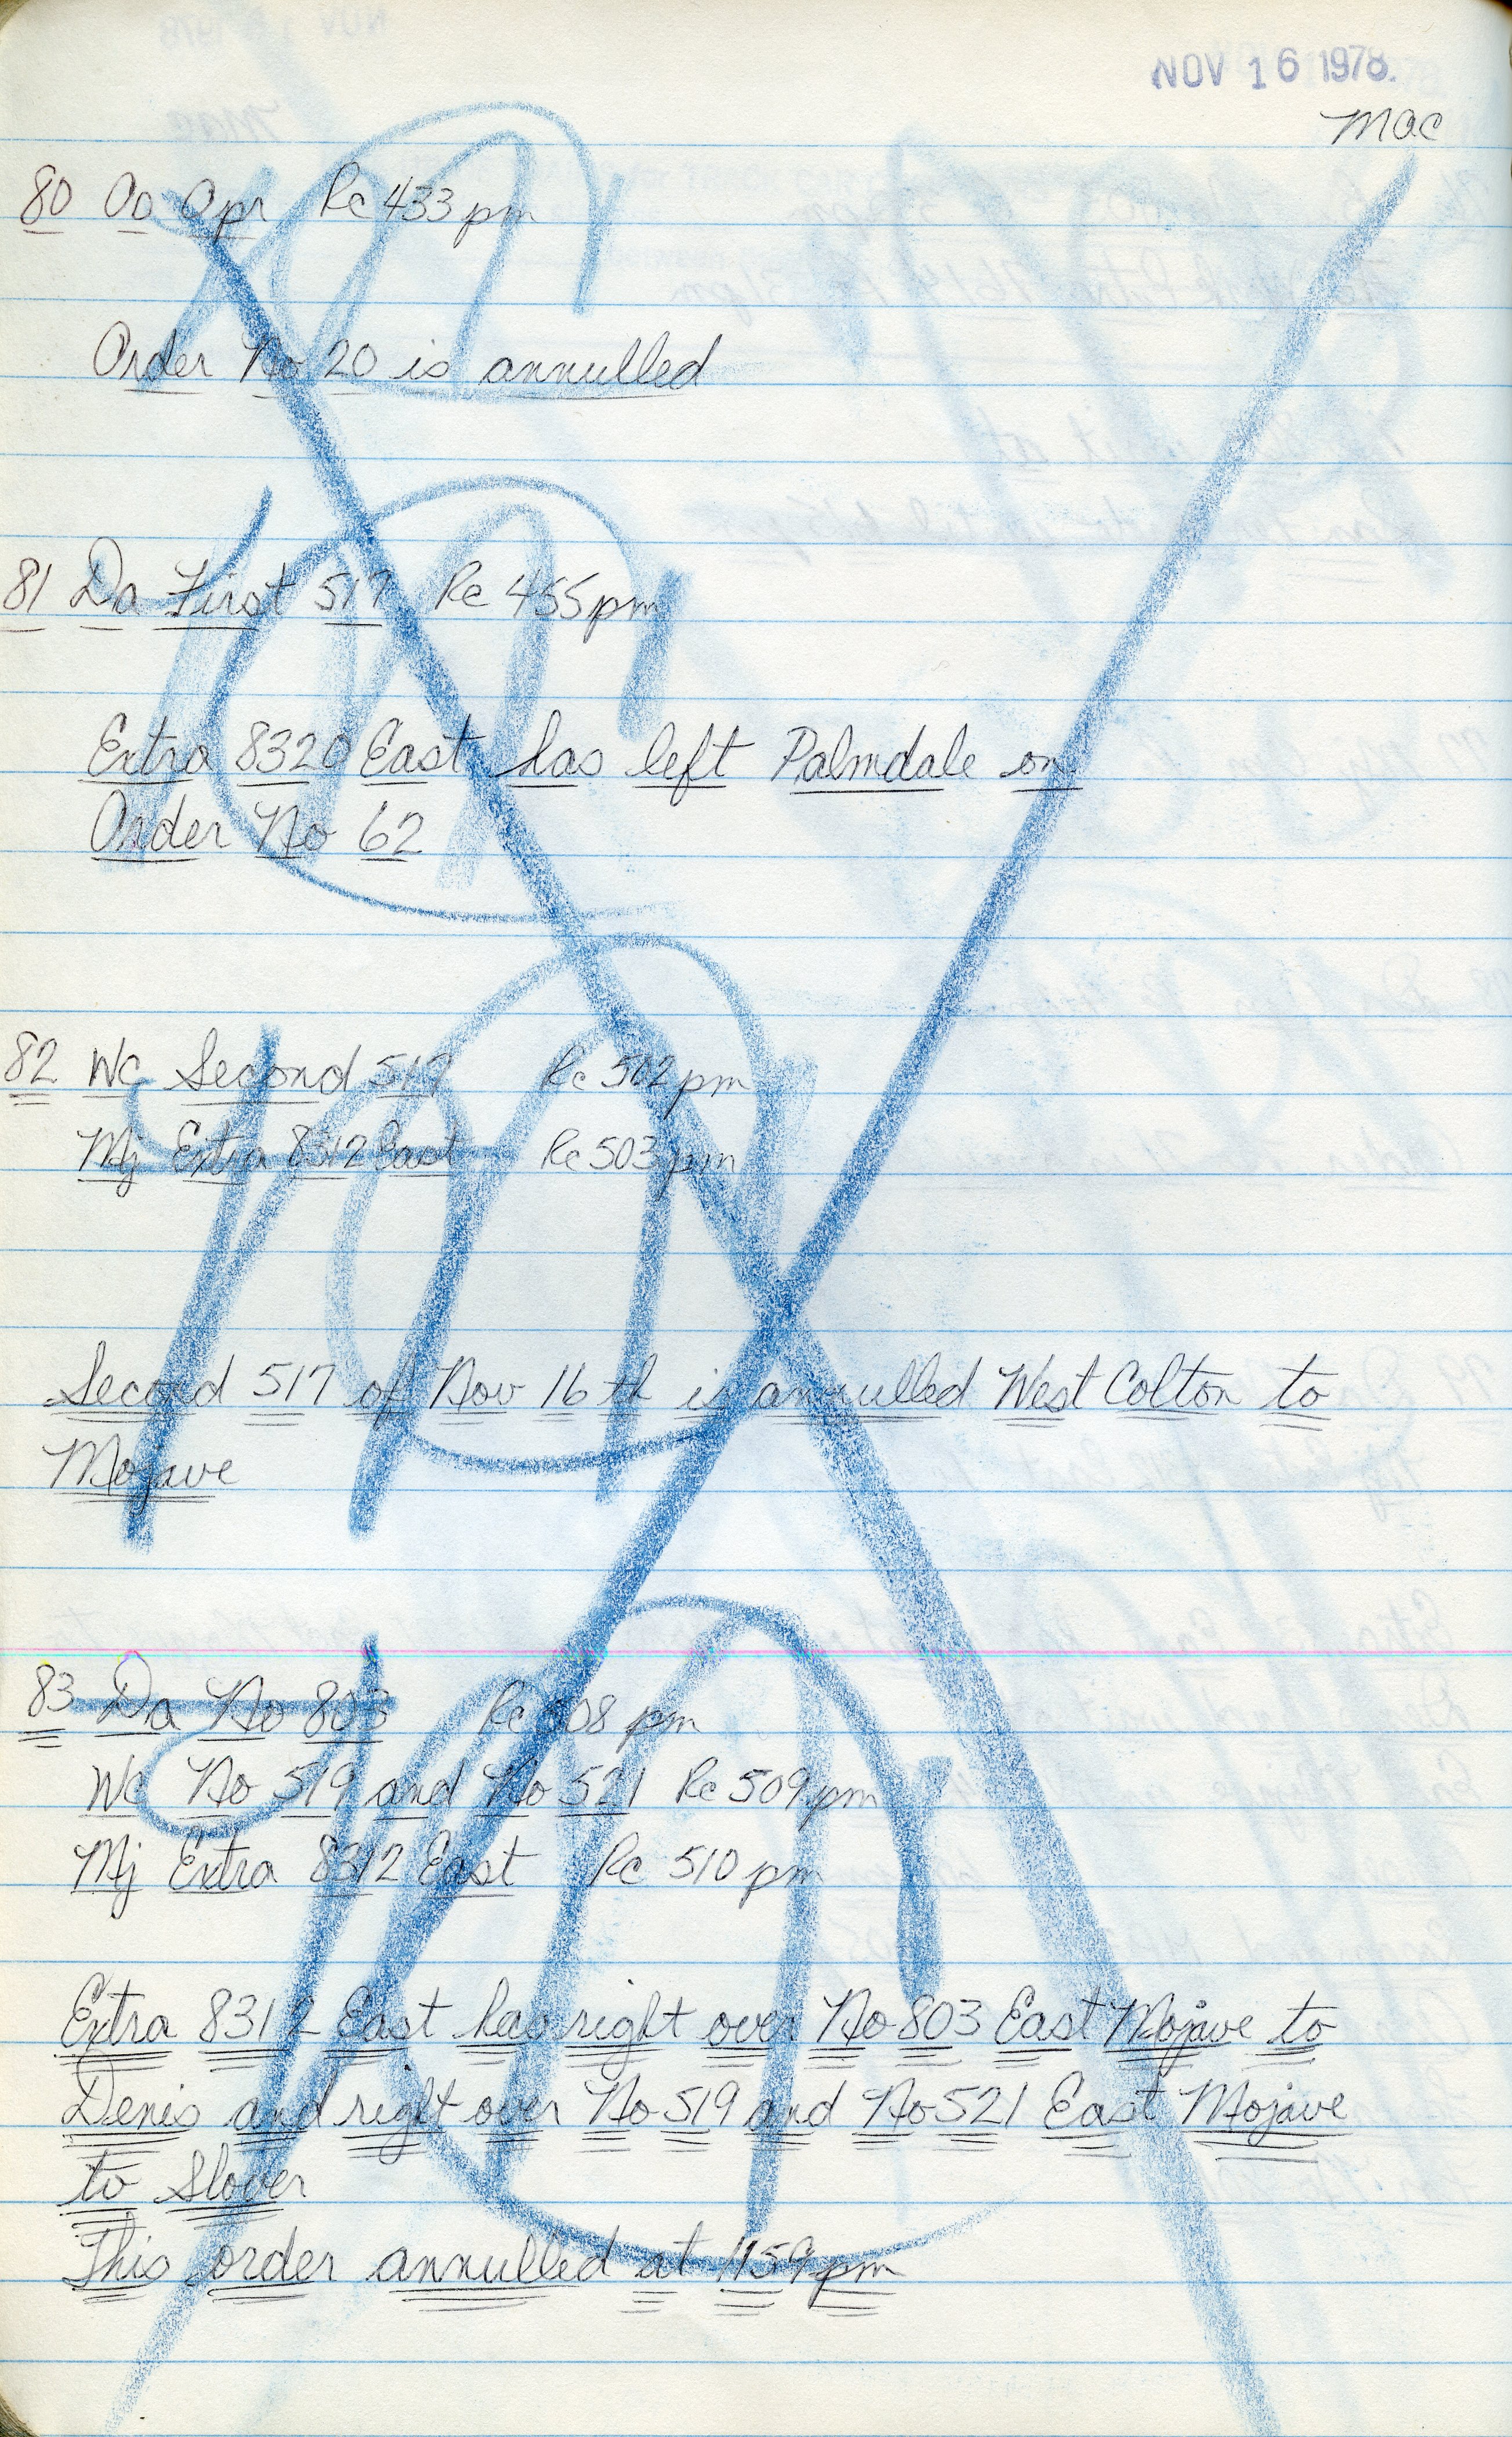 NOV 16 1978.
mac
80 Oo Opr Rc 433 pm
Order No 20 is annulled
81 Da First 517 Rc 455 pm
Extra 8320 East has left Palmdale on
Order No 62
82 Wc Second 517 Rc 502 pm
Mj Extra 8312 East Rc 503 pm
Second 517 of Nov 16th is annulled West Colton to
Mojave
83 Da No 803 Rc 508 pm
Wc No 519 and No 521 Rc 509 pm
Mj Extra 8312 East Rc 510 pm
Extra 8312 East has right over No 803 East Mojave to
Denis and right over No 519 and No 521 East Mojave
to Slover
This order annulled at 1159 pm